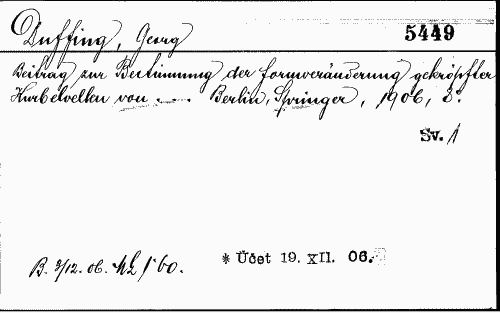 Duffing, Georg
5449
Beitrag zur Bestimmung der formveränderung gekröpfter
Kurbelwellen von —. Berlin, Springer, 1906, 8°.
Sv. 1
B. 3/12. 06. 1.60.
* Účet 19. XII. 06.